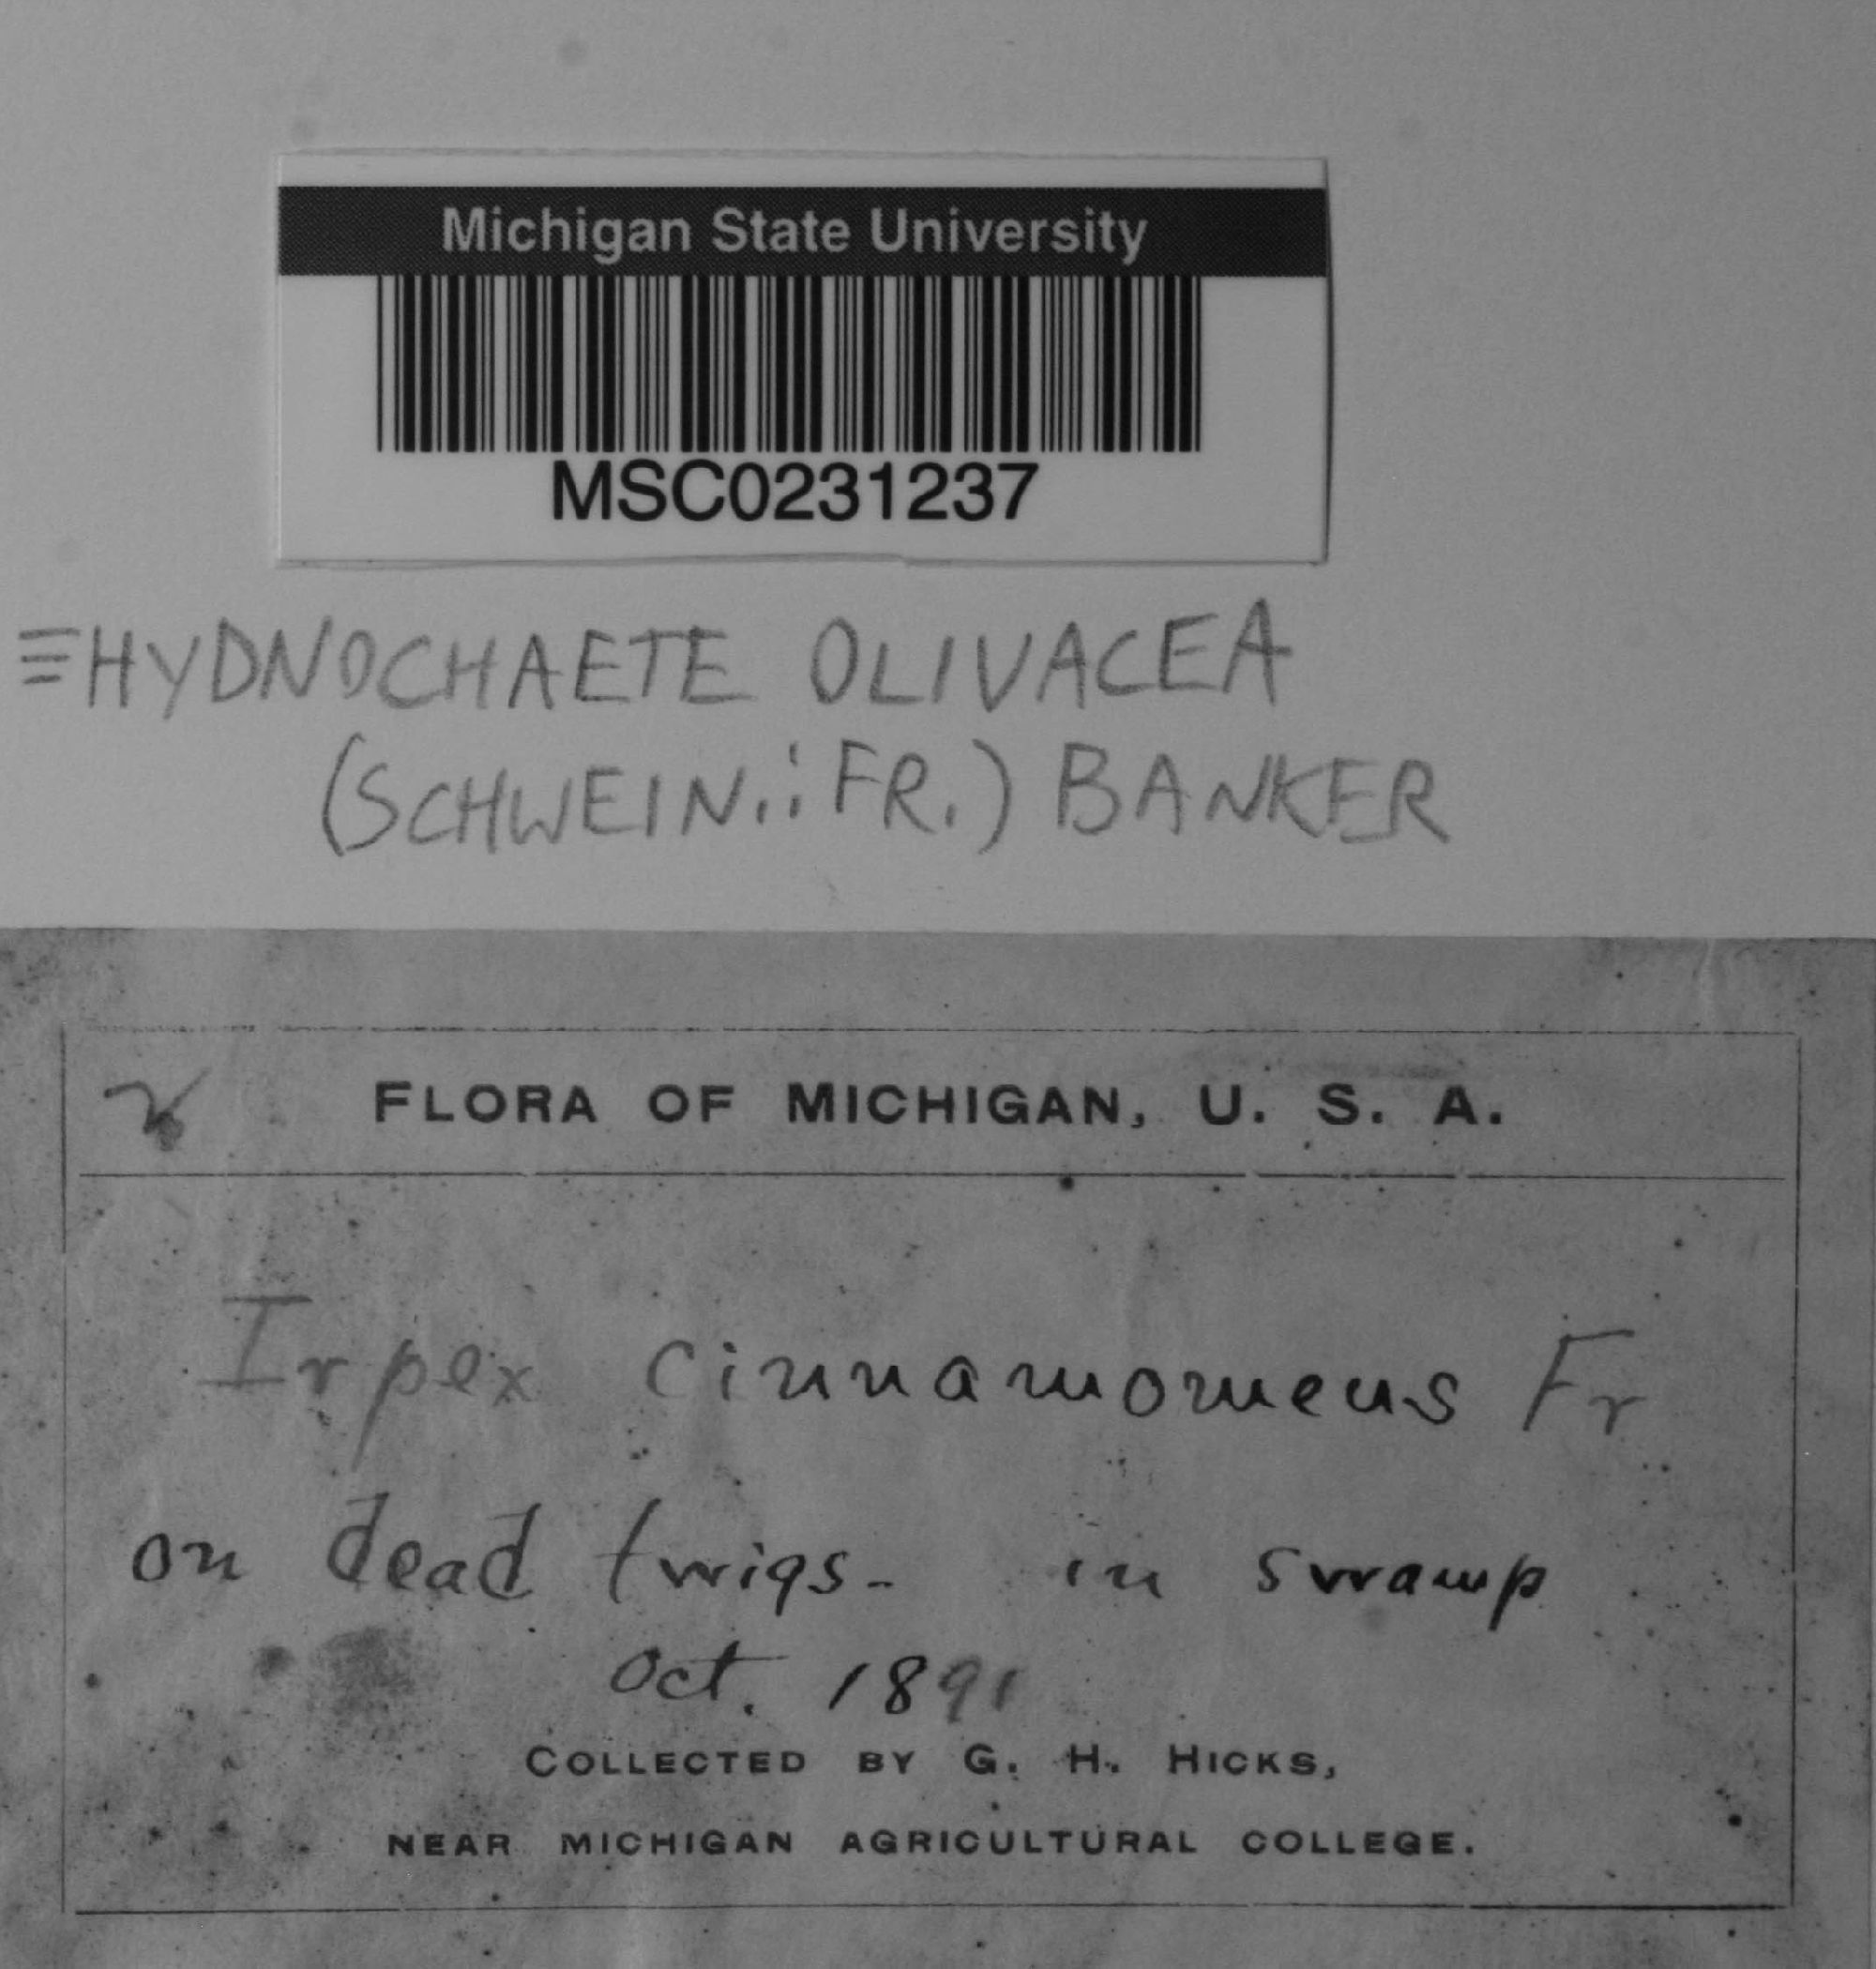 Michigan State University
MSC0231237
≡HYDNOCHAETE OLIVACEA
(SCHWEIN.:FR.) BANKER
FLORA OF MICHIGAN, U. S. A.
Irpex cinnamomeus Fr
on dead twigs- in swamp
Oct. 1891
COLLECTED BY G. H. HICKS,
NEAR MICHIGAN AGRICULTURAL COLLEGE.